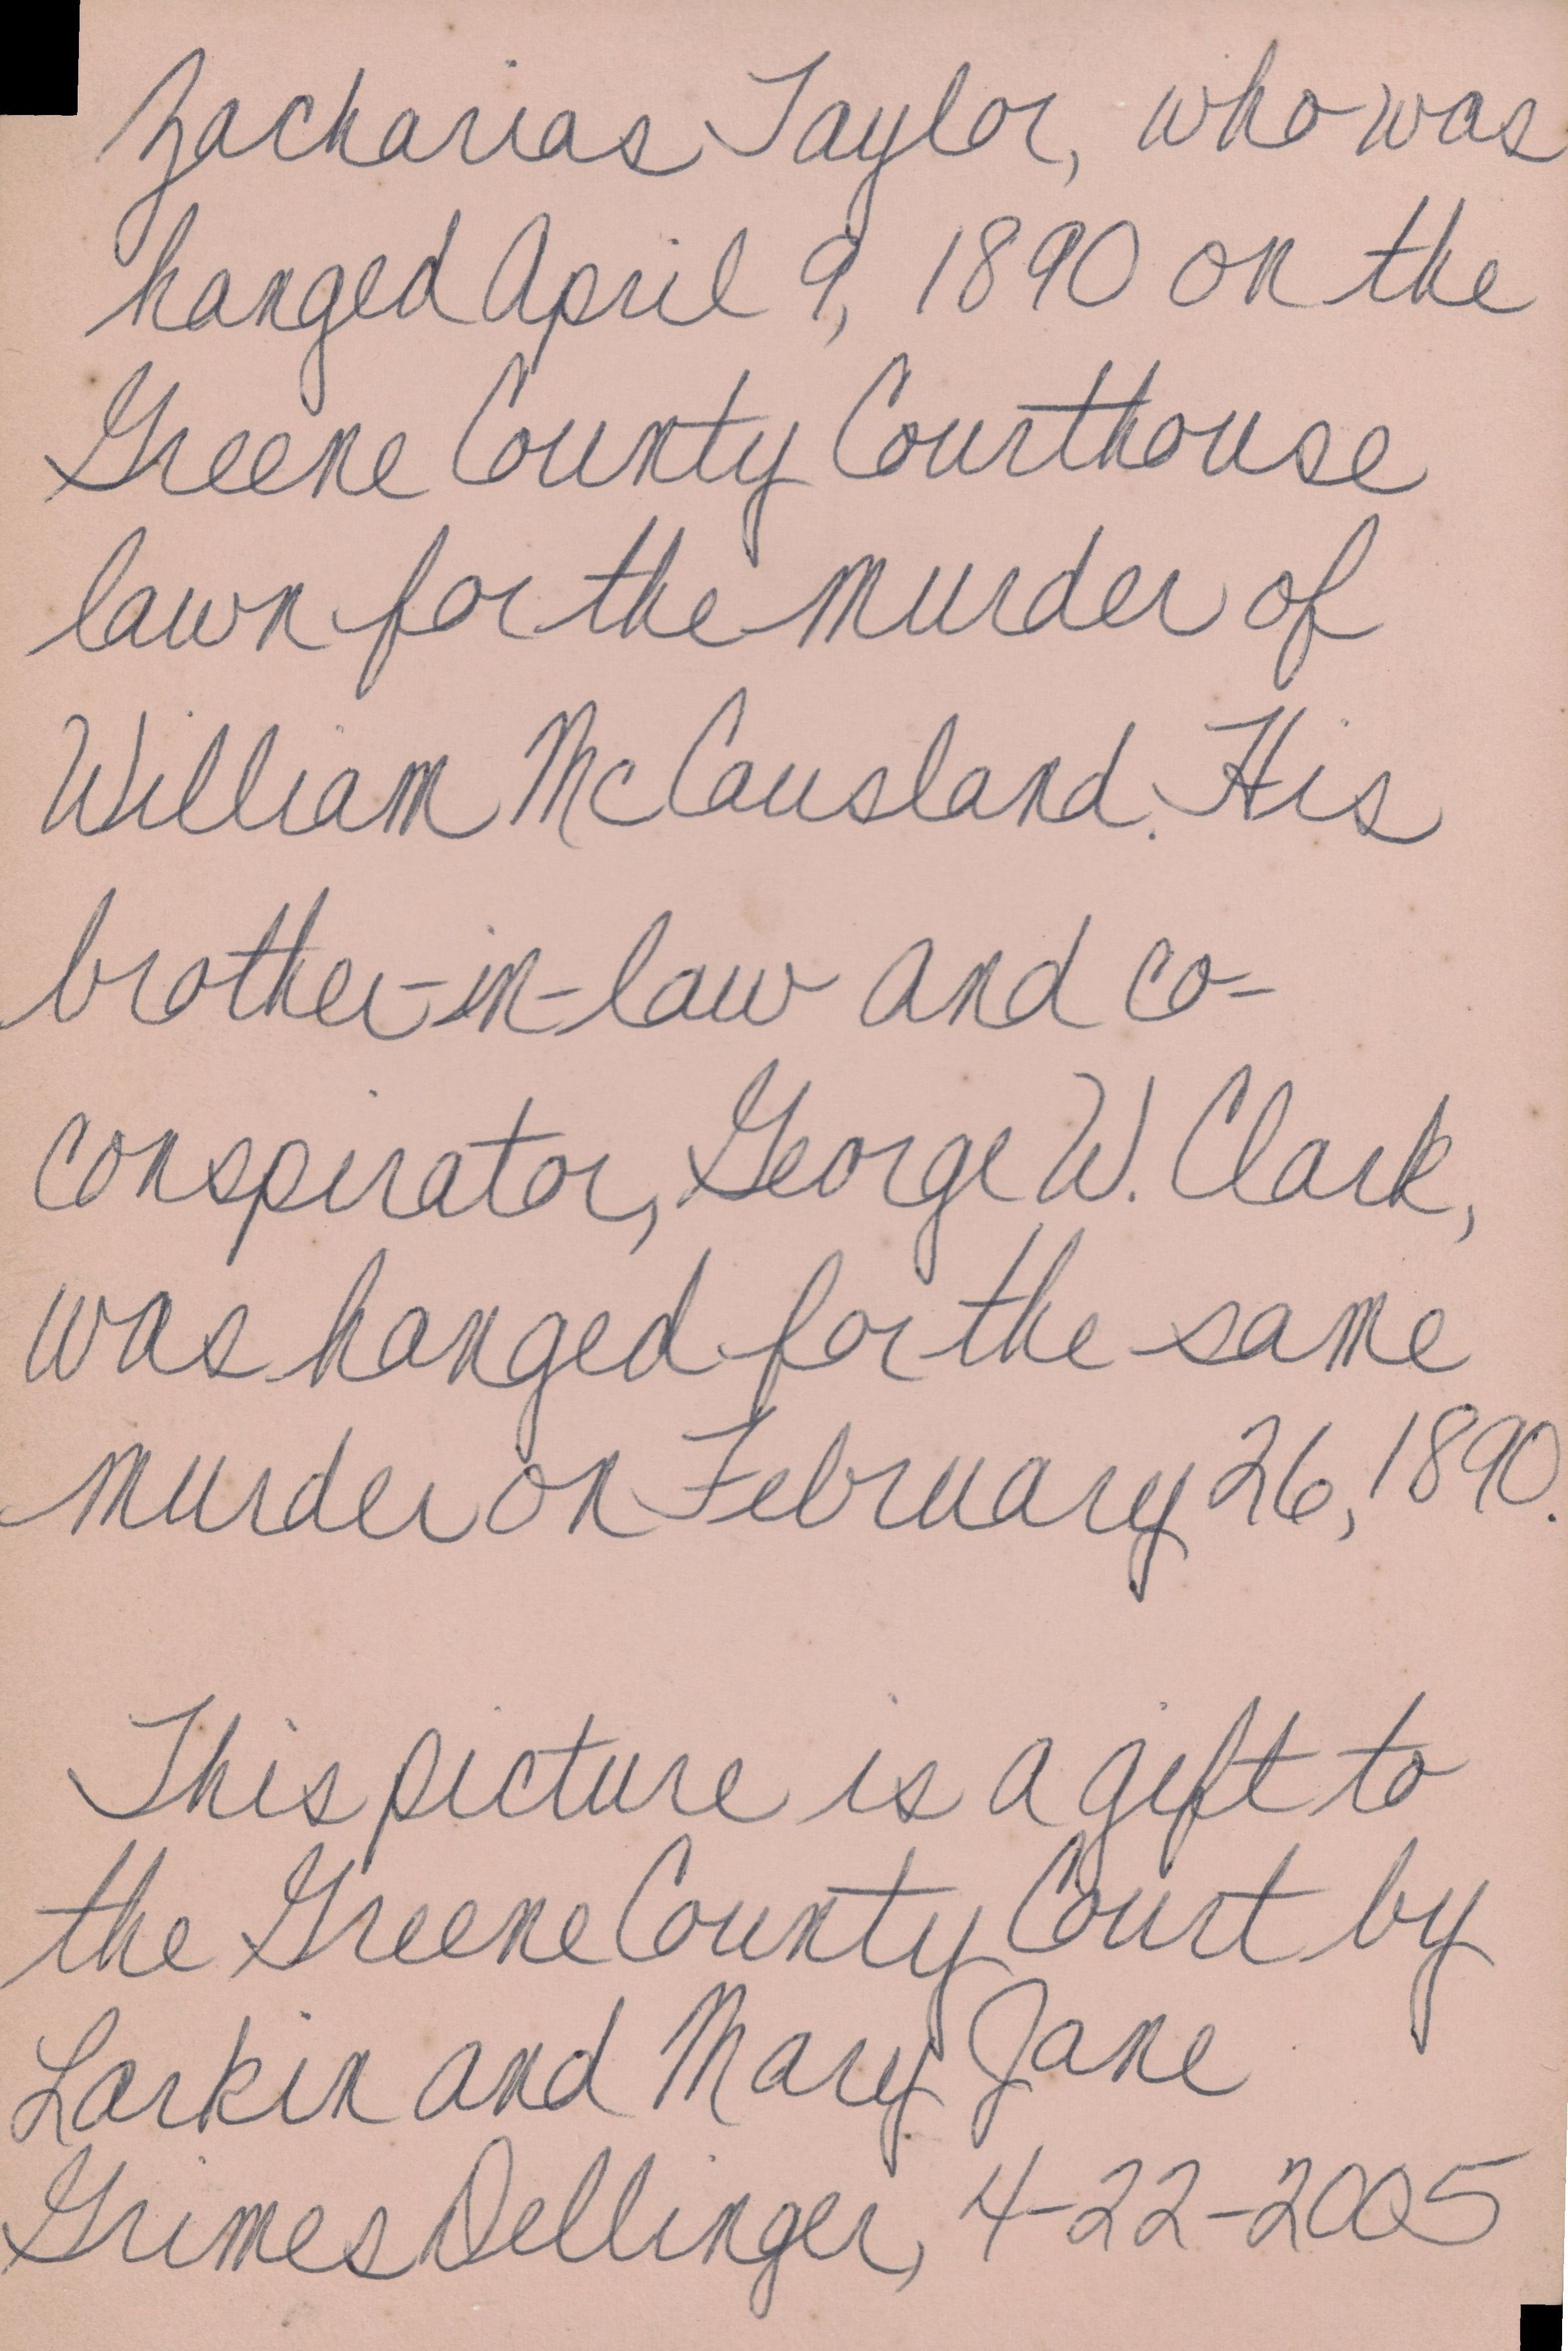 Zacharias Taylor, who was
hanged April 9, 1890 on the
Greene County Courthouse
lawn for the murder of
William McCausland. His
brother-in-law and co-
conspirator, George W. Clark,
was hanged for the same
murder on February 26, 1890.
This picture is a gift to
the Greene County Court by
Larkin and Mary Jane
Grimes Dellinger, 4-22-2005